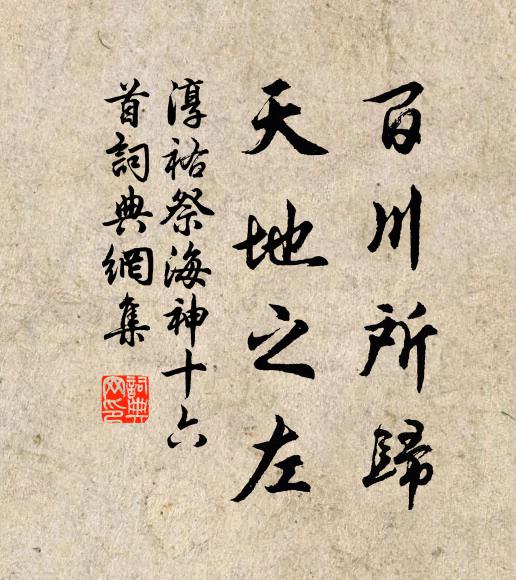 百川所歸
天地之左
淳祐祭海神十六
首詞典網集
詞典
网印